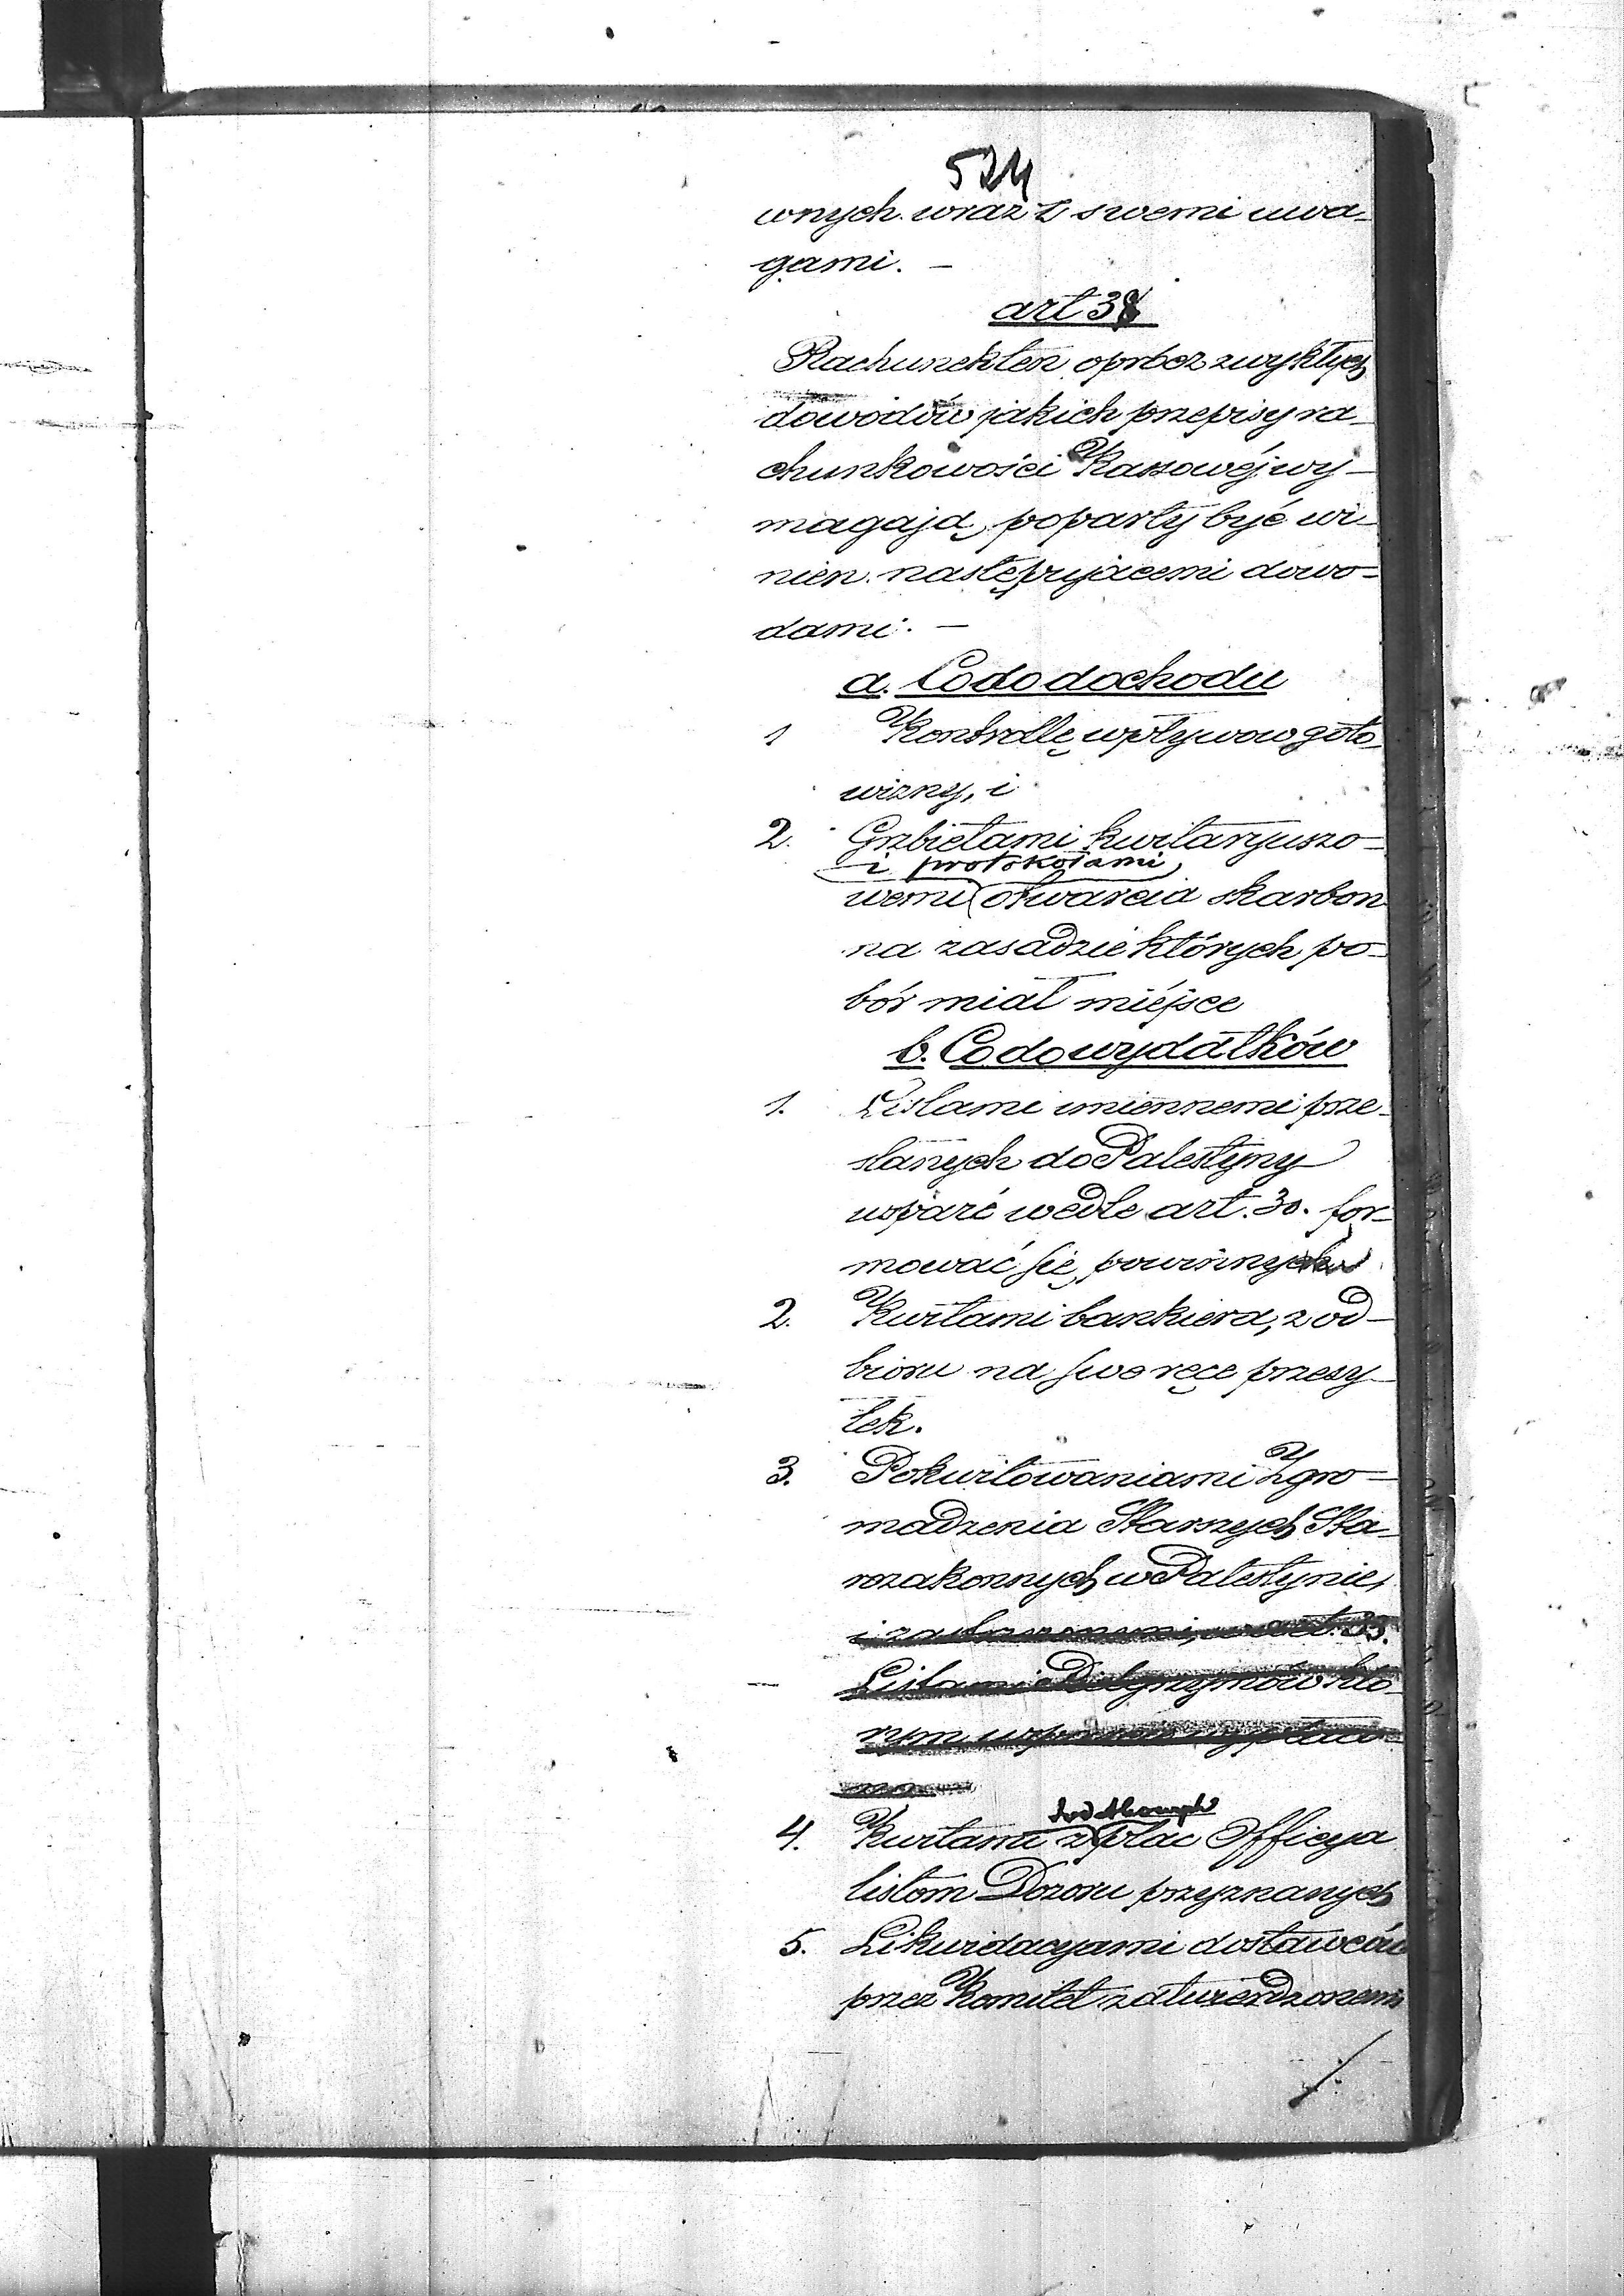 524
wnych wraz z swemi uwa-
gami. —
art 38
Rachunek ten oprócz zwykłych
dowodów jakich przepisy ra-
chunkowości Kassowéj wy-
magają, poparty być wi-
nien następującemi dowo-
dami. —
a. Co do dochodu
1 Kontrollę wpływow goto-
wizny, i
2. Grzbietami kwitaryuszo-
i protokołami
wemi otwarcia skarbon
na zasadzie których po-
bór miał miéjsce
b. Co do wydatków
1. Listami imiennemi prze-
słanych do Palestyny
wsparć wedle art. 30. for-
mować się powinnych
2. Kwitami bankiera, z od-
bioru na swe ręce przesy-
łek.
3. Pokwitowaniami Zgro-
madzenia Starszych Sta-
rozakonnych w Palestynie,
i art. 33.
Listami Pielgrzymów któ-
rym wyplaco-
no
4. Kwitami z płac Officya
listom Dozoru przyznanych
5. Likwidacyami dostawców
przez Komitet zatwierdzonemi